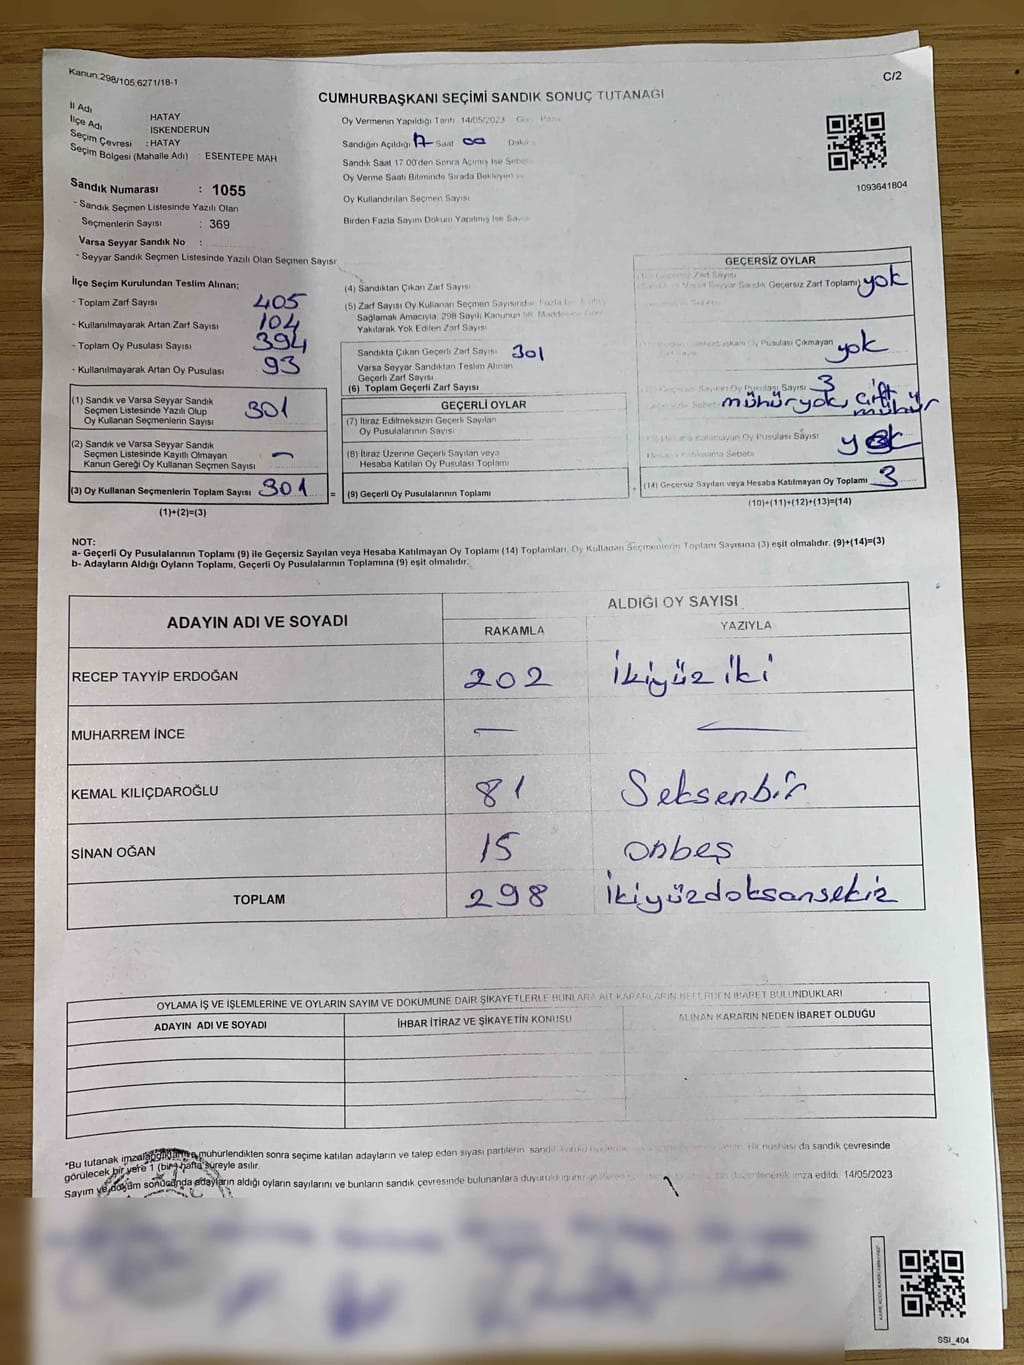 Kanun:298/105;6271/18-1
C/2
CUMHURBAŞKANI SEÇİMİ SANDIK SONUÇ TUTANAĞI
İl Adı HATAY
İlçe Adı İSKENDERUN
Seçim Çevresi : HATAY
Seçim Bölgesi (Mahalle Adı) : ESENTEPE MAH
Sandık Numarası : 1055
- Sandık Seçmen Listesinde Yazılı Olan
Seçmenlerin Sayısı : 369
Varsa Seyyar Sandık No :
- Seyyar Sandık Seçmen Listesinde Yazılı Olan Seçmen Sayısı
Oy Vermenin Yapıldığı Tarih 14/05/2023
Sandığın Açıldığı 17 Saat 00
Sandık Saat 17 00'den Sonra Açımış İse
Oy Verme Saati Bitiminde Sırada Bekleyen
Oy Kullandırılan Seçmen Sayısı
Birden Fazla Sayım Döküm Yapılmış İse
1093641804
İlçe Seçim Kurulundan Teslim Alınan;
- Toplam Zarf Sayısı 405
- Kullanılmayarak Artan Zarf Sayısı 104
- Toplam Oy Pusulası Sayısı 394
- Kullanılmayarak Artan Oy Pusulası 93
(1) Sandık ve Varsa Seyyar Sandık
Seçmen Listesinde Yazılı Olup
Oy Kullanan Seçmenlerin Sayısı 301
(2) Sandık ve Varsa Seyyar Sandık
Seçmen Listesinde Kayıtlı Olmayan
Kanun Gereği Oy Kullanan Seçmen Sayısı -
(3) Oy Kullanan Seçmenlerin Toplam Sayısı 301 =
(1)+(2)=(3)
(4) Sandıktan Çıkan Zarf Sayısı
(5) Zarf Sayısı Oy Kullanan Seçmen Sayısından Fazla
Sağlamak Amacıyla, 298 Sayılı Kanunun
Yakılarak Yok Edilen Zarf Sayısı
Sandıkta Çıkan Geçerli Zarf Sayısı 301
Varsa Seyyar Sandıktan Teslim Alınan
Geçerli Zarf Sayısı
(6) Toplam Geçerli Zarf Sayısı
GEÇERLİ OYLAR
(7) İtiraz Edilmeksizin Geçerli Sayılan
Oy Pusulalarının Sayısı
(8) İtiraz Üzerine Geçerli Sayılan veya
Hesaba Katılan Oy Pusulası Toplamı
(9) Geçerli Oy Pusulalarının Toplamı
GEÇERSİZ OYLAR
Zarf Sayısı
Seyyar Sandık Geçersiz Zarf Toplamı) yok
Oy Pusulası Çıkmayan
yok
Oy Pusulası Sayısı 3
mühür yok, çift
mühür
Hesaba Katılmayan Oy Pusulası Sayısı yok
Hesaba Katılmama Sebebi
(14) Geçersiz Sayılan veya Hesaba Katılmayan Oy Toplamı 3
(10)+(11)+(12)+(13)=(14)
NOT:
a- Geçerli Oy Pusulalarının Toplamı (9) ile Geçersiz Sayılan veya Hesaba Katılmayan Oy Toplamı (14) Toplamları, Oy Kullanan Seçmenlerin Toplam Sayısına (3) eşit olmalıdır. (9)+(14)=(3)
b- Adayların Aldığı Oyların Toplamı, Geçerli Oy Pusulalarının Toplamına (9) eşit olmalıdır.
ADAYIN ADI VE SOYADI
ALDIĞI OY SAYISI
RAKAMLA YAZIYLA
RECEP TAYYİP ERDOĞAN 202 İkiyüz iki
MUHARREM İNCE - -
KEMAL KILIÇDAROĞLU 81 Seksenbir
SİNAN OĞAN 15 onbeş
TOPLAM 298 İkiyüzdoksansekiz
OYLAMA İŞ VE İŞLEMLERİNE VE OYLARIN SAYIM VE DÖKÜMÜNE DAİR ŞİKAYETLERLE BUNLARA AİT KARARLARIN NELERDEN İBARET BULUNDUKLARI
ADAYIN ADI VE SOYADI İHBAR İTİRAZ VE ŞİKAYETİN KONUSU ALINAN KARARIN NEDEN İBARET OLDUĞU
*Bu tutanak imzalandıktan ve mühürlendikten sonra seçime katılan adayların ve talep eden siyasi partilerin da sandık çevresinde
görülecek bir yere 1 (bir) hafta süreyle asılır.
Sayım ve döküm sonucunda adayların aldığı oyların sayılarını ve bunların sandık çevresinde bulunanlara duyurulduğunu düzenlenerek imza edildi. 14/05/2023
SSİ_404